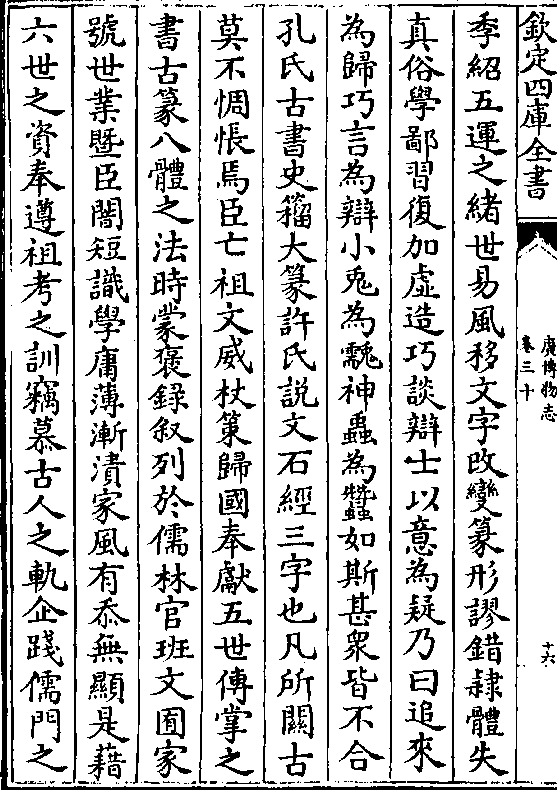 欽定四庫全書
廣博物志
卷三十
十六
季紹五運之緒世易風移文字改變篆形謬錯隸體失
真俗學鄙習復加虛造巧談辯士以意為疑乃曰追來
為歸巧言為辯小兎為䨲神蟲為蠶如斯甚衆皆不合
孔氏古書史籀大篆許氏說文石經三字也凡所關古
莫不惆悵焉臣亡祖文威杖策歸國奉獻五世傳掌之
書古篆八體之法時蒙褒録叙列於儒林官班文囿家
號世業暨臣闇短識學庸薄漸漬家風有忝無顯是藉
六世之資奉遵祖考之訓竊慕古人之軌企踐儒門之